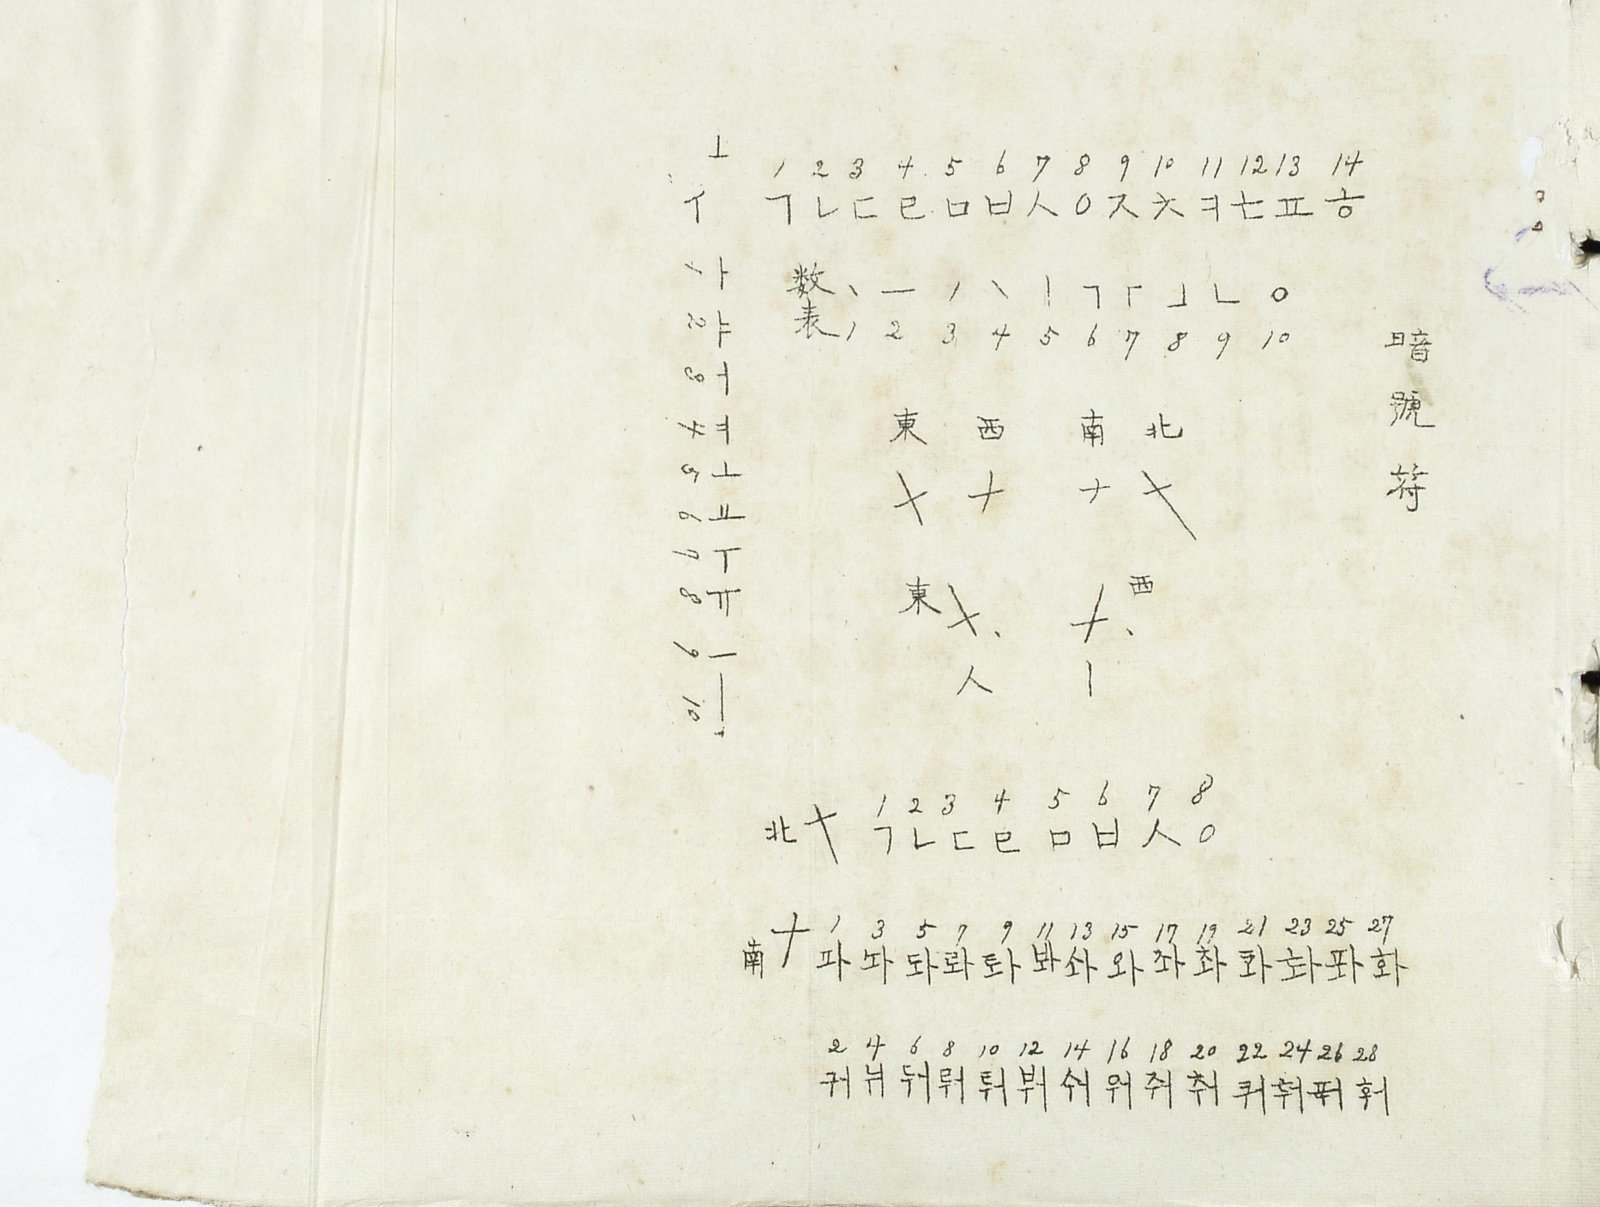 暗號符
1 2 3 4 5 6 7 8 9 10 11 12 13 14
ㄱ ㄴ ㄷ ㄹ ㅁ ㅂ ㅅ ㅇ ㅈ ㅊ ㅋ ㅌ ㅍ ㅎ
数表
丶 一 丿 ㇔ 丨 ㄱ 「 」 ㄴ ㅇ
1 2 3 4 5 6 7 8 9 10
東 西 南 北
東 西
人 丨
ㅏ ㅑ ㅓ ㅕ ㅗ ㅛ ㅜ ㅠ ㅡ ㅣ
1 2 3 4 5 6 7 8 9 10
北
1 2 3 4 5 6 7 8
ㄱ ㄴ ㄷ ㄹ ㅁ ㅂ ㅅ ㅇ
南
1 3 5 7 9 11 13 15 17 19 21 23 25 27
과 놔 돠 롸 톼 봐 솨 와 좌 촤 콰 화 퐈 화
2 4 6 8 10 12 14 16 18 20 22 24 26 28
궈 눠 둬 뤄 퉈 붜 숴 워 줘 춰 쿼 훠 풔 훠